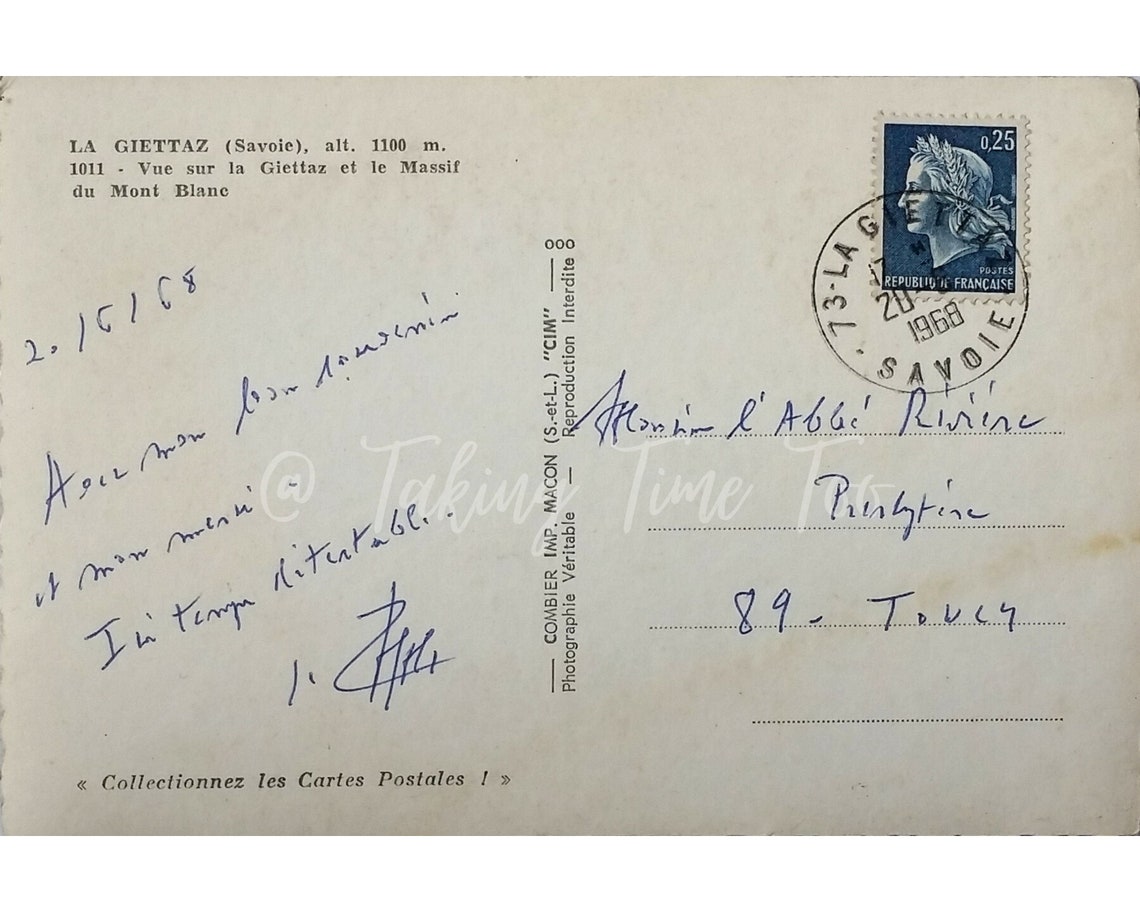 LA GIETTAZ (Savoie), alt. 1100 m.
1011 - Vue sur la Giettaz et le Massif
du Mont Blanc
20/6/68
Avec mon bon souvenir
et mon merci.
Ici temps détestable.
« Collectionnez les Cartes Postales ! »
COMBIER IMP. MACON (S.-et-L.) "CIM"
Photographie Véritable — Reproduction Interdite
ooo
0,25
POSTES
REPUBLIQUE FRANÇAISE
73-LA GIETTAZ
20
1968
SAVOIE
Monsieur l'Abbé Rivière
Presbytère
89 - Toucy
@ Taking Time Too